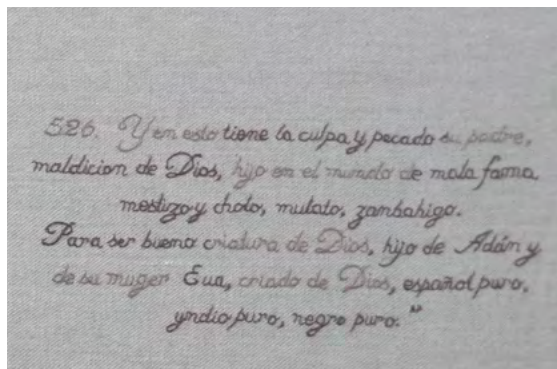 526. Y en esto tiene la culpa y pecado su padre,
maldicion de Dios, hijo en el mundo de mala fama
mestizo y cholo, mulato, zanbahigo.
Para ser bueno criatura de Dios, hijo de Adán y
de su muger Eua, criado de Dios, español puro,
yndio puro, negro puro."